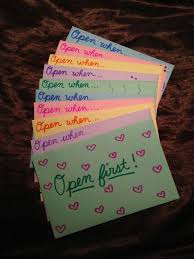 Open when..
Open when...
Open when...
Open when...
Open when....
Open when....
Open when...
Open when...
Open when...
Open first!